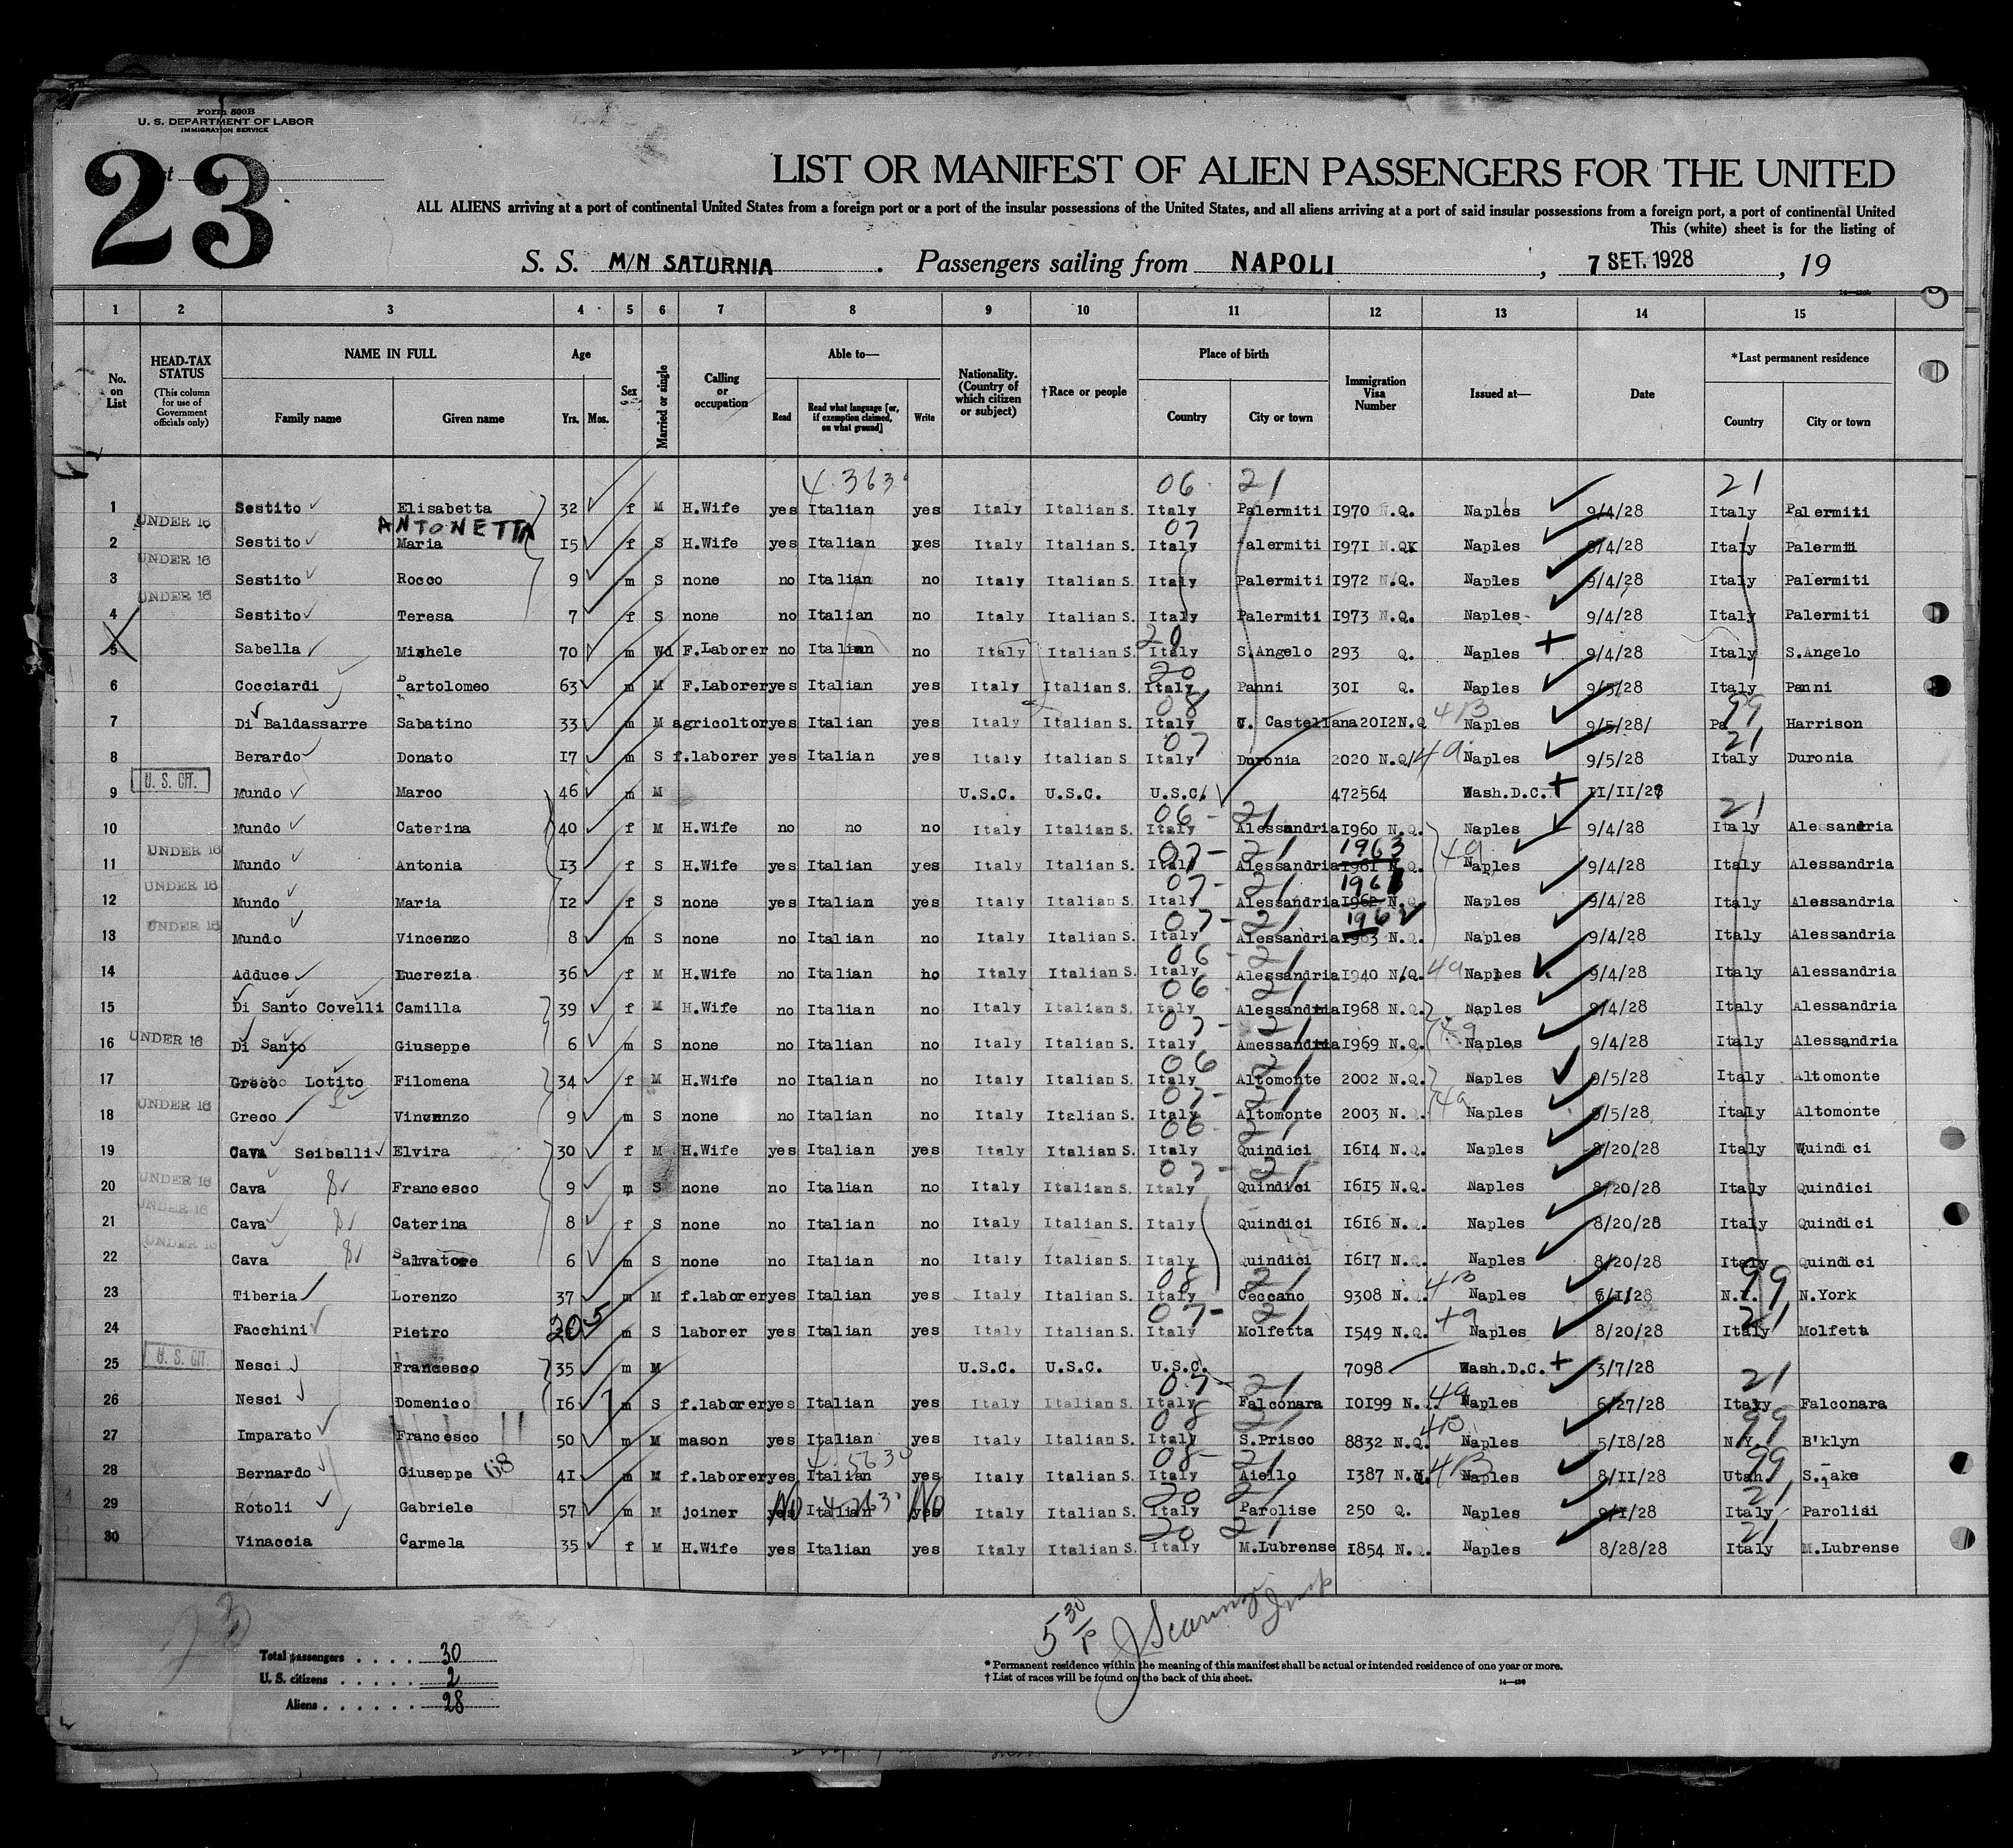 Form 500B
U. S. DEPARTMENT OF LABOR
IMMIGRATION SERVICE
23
LIST OR MANIFEST OF ALIEN PASSENGERS FOR THE UNITED
ALL ALIENS arriving at a port of continental United States from a foreign port or a port of the insular possessions of the United States, and all aliens arriving at a port of said insular possessions from a foreign port, a port of continental United
This (white) sheet is for the listing of
S. S. M/N SATURNIA. Passengers sailing from NAPOLI, 7 SET. 1928, 19
1 2 3 4 5 6 7 8 9 10 11 12 13 14 15
No. on List
HEAD-TAX STATUS (This column for use of Government officials only)
NAME IN FULL Family name Given name
Age Yrs. Mos.
Sex
Married or single
Calling or occupation
Able to— Read Read what language [or, if exemption claimed, on what ground] Write
Nationality. (Country of which citizen or subject)
†Race or people
Place of birth Country City or town
Immigration Visa Number
Issued at—
Date
*Last permanent residence Country City or town
4.363 06 21 21
1 Sestito Elisabetta 32 f M H.Wife yes Italian yes Italy Italian S. Italy Palermiti 1970 N.Q. Naples 9/4/28 Italy Palermiti
UNDER 16 ANTONETTA 07
2 Sestito Maria 15 f S H.Wife yes Italian yes Italy Italian S. Italy Palermiti 1971 N.Q. Naples 9/4/28 Italy Palermiti
UNDER 16
3 Sestito Rocco 9 m S none no Italian no Italy Italian S. Italy Palermiti 1972 N.Q. Naples 9/4/28 Italy Palermiti
UNDER 16
4 Sestito Teresa 7 f S none no Italian no Italy Italian S. Italy Palermiti 1973 N.Q. Naples 9/4/28 Italy Palermiti
20
5 Sabella Michele 70 m Wd F.Laborer no Italian no Italy Italian S. Italy S.Angelo 293 Q. Naples 9/4/28 Italy S.Angelo
20
6 Cocciardi Bartolomeo 63 m M F.Laborer yes Italian yes Italy Italian S. Italy Panni 301 Q. Naples 9/5/28 Italy Panni
08 4B 99
7 Di Baldassarre Sabatino 33 m M agricoltor yes Italian yes Italy Italian S. Italy C. Castellana 2012 N.Q Naples 9/5/28 Pa Harrison
07 49 21
8 Berardo Donato 17 m S f.laborer yes Italian yes Italy Italian S. Italy Duronia 2020 N.Q. Naples 9/5/28 Italy Duronia
U. S. CIT.
9 Mundo Marco 46 m M U.S.C. U.S.C. U.S.C. 472564 Wash.D.C. 11/11/27
06 - 21 21
10 Mundo Caterina 40 f M H.Wife no no no Italy Italian S. Italy Alessandria 1960 N.Q. Naples 9/4/28 Italy Alessandria
UNDER 16 07 - 21 1963 49
11 Mundo Antonia 13 f S H.Wife yes Italian yes Italy Italian S. Italy Alessandria 1961 N.Q. Naples 9/4/28 Italy Alessandria
UNDER 16 07 - 21
12 Mundo Maria 12 f S none yes Italian yes Italy Italian S. Italy Alessandria 1962 N.Q Naples 9/4/28 Italy Alessandria
UNDER 16 07 - 21 1962
13 Mundo Vincenzo 8 m S none no Italian no Italy Italian S. Italy Alessandria 1963 N.Q. Naples 9/4/28 Italy Alessandria
06 - 21 49
14 Adduce Lucrezia 36 f M H.Wife no Italian no Italy Italian S. Italy Alessandria 1940 N.Q. Naples 9/4/28 Italy Alessandria
06 - 21
15 Di Santo Covelli Camilla 39 f M H.Wife no Italian no Italy Italian S. Italy Alessandria 1968 N.Q. Naples 9/4/28 Italy Alessandria
UNDER 16 07 - 21 49
16 Di Santo Giuseppe 6 m S none no Italian no Italy Italian S. Italy Amessandria 1969 N.Q. Naples 9/4/28 Italy Alessandria
06 21
17 Greco Lotito Filomena 34 f M H.Wife no Italian no Italy Italian S. Italy Altomonte 2002 N.Q. Naples 9/5/28 Italy Altomonte
UNDER 16 07 - 21 49
18 Greco Vincenzo 9 m S none no Italian no Italy Italian S. Italy Altomonte 2003 N.Q. Naples 9/5/28 Italy Altomonte
06 - 21
19 Cava Seibelli Elvira 30 f M H.Wife yes Italian yes Italy Italian S. Italy Quindici 1614 N.Q. Naples 8/20/28 Italy Quindici
UNDER 16 07 - 21
20 Cava Francesco 9 m S none no Italian no Italy Italian S. Italy Quindici 1615 N.Q. Naples 8/20/28 Italy Quindici
UNDER 16
21 Cava Caterina 8 f S none no Italian no Italy Italian S. Italy Quindici 1616 N.Q. Naples 8/20/28 Italy Quindici
UNDER 16
22 Cava Salvatore 6 m S none no Italian no Italy Italian S. Italy Quindici 1617 N.Q. Naples 8/20/28 Italy Quindici
08 21 4B 99
23 Tiberia Lorenzo 37 m M f.laborer yes Italian yes Italy Italian S. Italy Ceccano 9308 N.Q. Naples 6/1/28 N.Y. N.York
07 - 21 49 21
24 Facchini Pietro 20 5 m S laborer yes Italian yes Italy Italian S. Italy Molfetta 1549 N.Q. Naples 8/20/28 Italy Molfetta
U. S. CIT.
25 Nesci Francesco 35 m M U.S.C. U.S.C. U.S.C. 7098 Wash.D.C. 3/7/28
07 - 21 49 21
26 Nesci Domenico 16 7 m S f.laborer yes Italian yes Italy Italian S. Italy Falconara 10199 N.Q. Naples 6/27/28 Italy Falconara
08 21 99
27 Imparato Francesco 50 m M mason yes Italian yes Italy Italian S. Italy S.Prisco 8832 N.Q. Naples 5/18/28 N.Y. B'klyn
68 08 - 21 4B 99
28 Bernardo Giuseppe 41 m M f.laborer yes Italian yes Italy Italian S. Italy Aiello 1387 N.Q. Naples 8/11/28 Utah S.Lake
No No 20 21 21
29 Rotoli Gabriele 57 m M joiner yes Italian yes Italy Italian S. Italy Parolise 250 Q. Naples 9/1/28 Italy Parolisi
20 21 21
30 Vinaccia Carmela 35 f M H.Wife yes Italian yes Italy Italian S. Italy M.Lubrense 1854 N.Q. Naples 8/28/28 Italy M.Lubrense
Total passengers . . . . 30
U. S. citizens . . . . . 2
Aliens . . . . . . 28
5 30/P J Searing Insp
* Permanent residence within the meaning of this manifest shall be actual or intended residence of one year or more.
† List of races will be found on the back of this sheet.